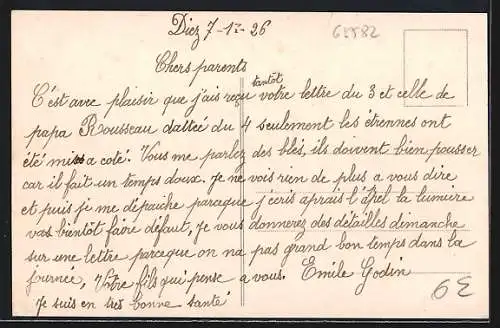 Diez 7-12-26
65582
Chers parents
C'est avec plaisir que j'ais reçu tantot votre lettre du 3 et celle de
papa Rousseau dattée du 4 seulement les étrennes ont
été mis a coté. Vous me parlez des blés, ils doivent bien pousser
car il fait un temps doux. Je ne vois rien de plus a vous dire
et puis je me dépaiche parceque j'écris aprais l'apel la lumiere
vas bientôt faire défaut, je vous donnerez des détailles dimanche
sur une lettre parceque on na pas grand bon temps dans la
journée, Votre fils qui pense a vous. Emile Godin
Je suis en tres bonne santé
6E